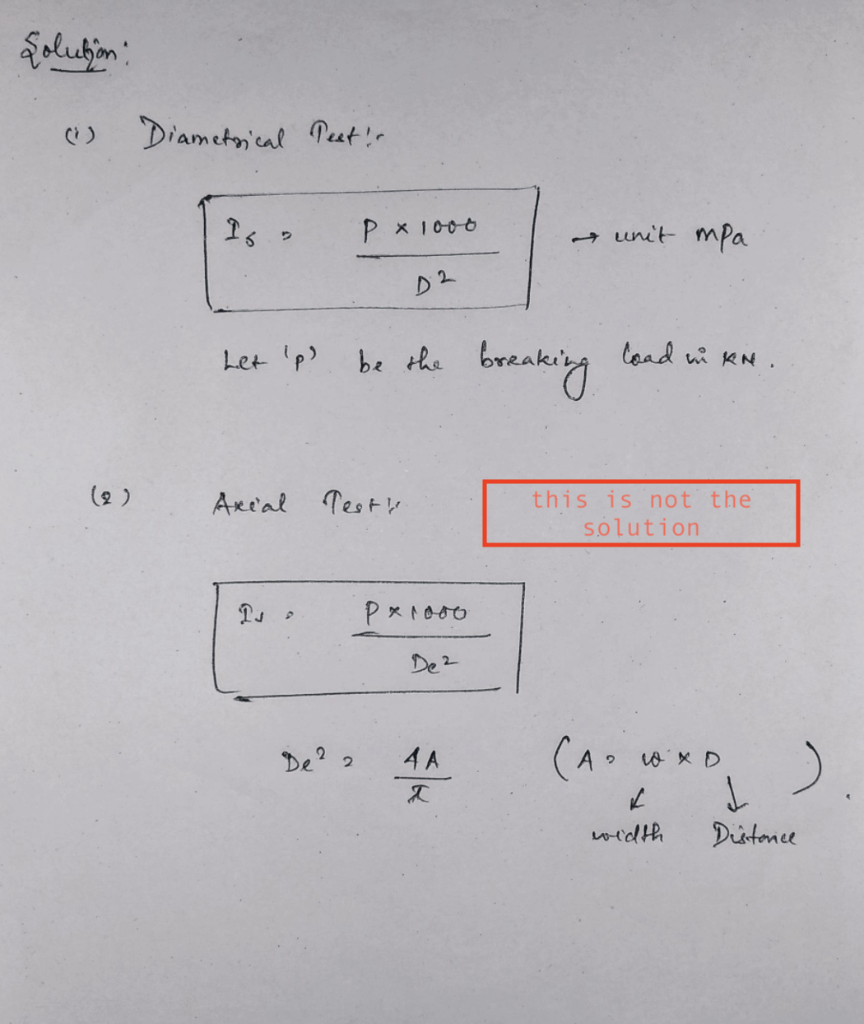 Solution:
(1) Diametrical Test:-
Is = P × 1000 / D² → unit mPa
Let 'p' be the breaking load in KN.
(2) Axial Test:-
this is not the
solution
Is = P × 1000 / De²
De² = 4A / π (A = w × D)
width Distance